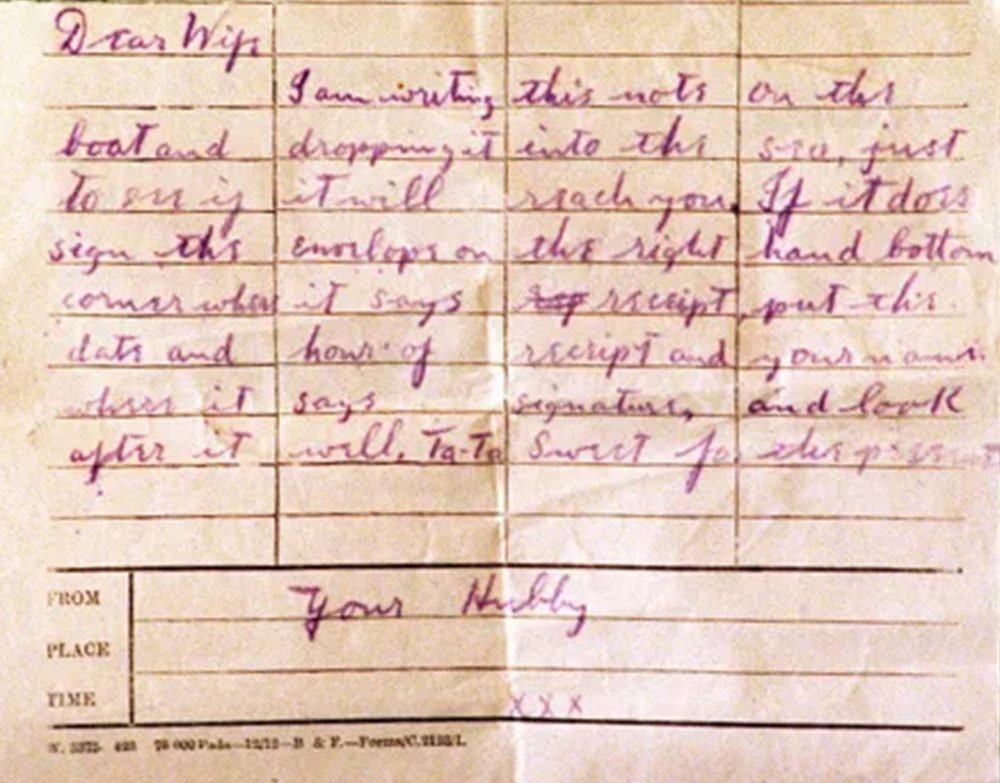 Dear Wife
I am writing this note on the
boat and dropping it into the sea, just
to see if it will reach you. If it does
sign the envelope on the right hand bottom
corner where it says rec receipt, put the
date and hour of receipt and your name
where it says signature, and look
after it well. Ta-Ta Sweet fo the present
FROM Your Hubby
PLACE
TIME x x x